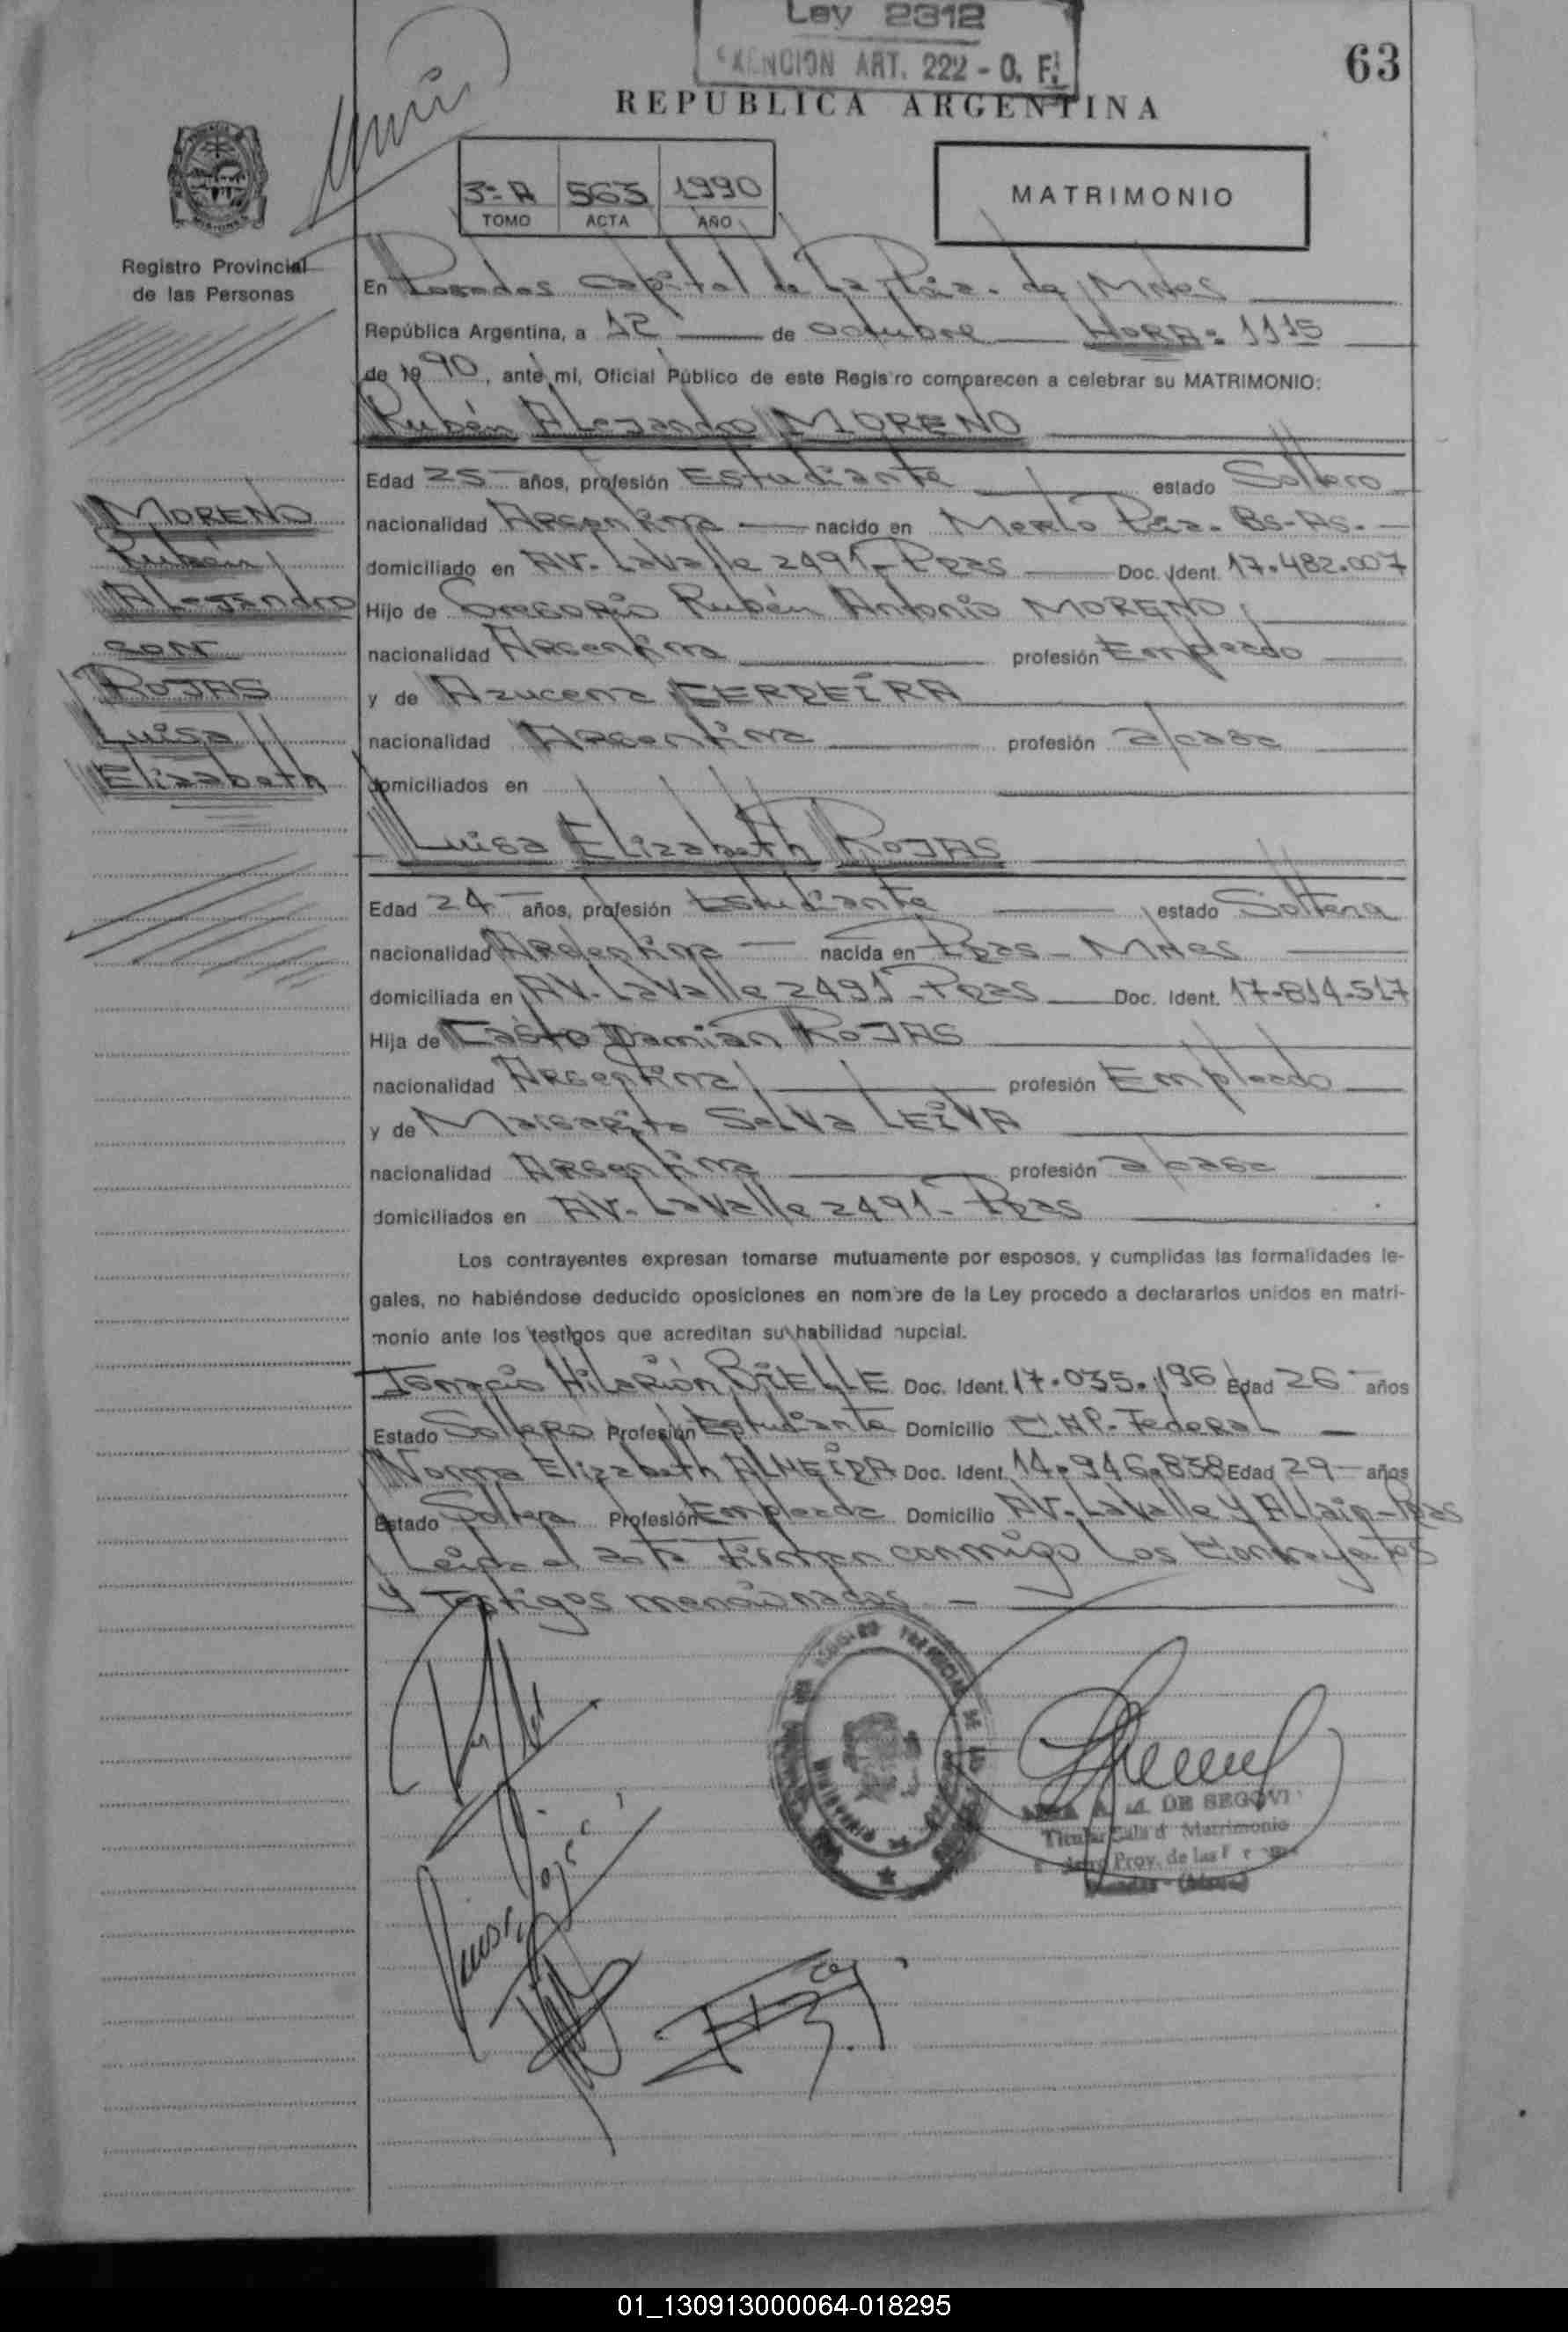 Ley 2312
EXENCION ART. 222 - O. F.
63
REPUBLICA ARGENTINA
3º A 563 1990
TOMO ACTA AÑO
MATRIMONIO
Registro Provincial
de las Personas
En Posadas Capital de La Pcia. de Mnes
República Argentina, a 12 de octubre HORA: 1115
de 1990, ante mí, Oficial Público de este Registro comparecen a celebrar su MATRIMONIO:
Rubén Alejandro MORENO
Edad 25 años, profesión Estudiante estado Soltero
nacionalidad Argentina nacido en Merlo Pcia. Bs-As.-
domiciliado en AV. Lavalle 2491-Pdas Doc. Ident. 17.482.007
Hijo de Gregorio Rubén Antonio MORENO
nacionalidad Argentina profesión Empleado
y de Azucena CERDEIRA
nacionalidad Argentina profesión a/casa
domiciliados en
MORENO
Rubén
Alejandro
con
ROJAS
Luisa
Elizabeth
Luisa Elizabeth ROJAS
Edad 24 años, profesión Estudiante estado Soltera
nacionalidad Argentina nacida en Pdas - Mnes
domiciliada en AV. Lavalle 2491-Pdas Doc. Ident. 17-814-517
Hija de Casto Damián ROJAS
nacionalidad Argentina profesión Empleado
y de Margarita Selva LEIVA
nacionalidad Argentina profesión a/casa
domiciliados en AV. Lavalle 2491- Pdas
Los contrayentes expresan tomarse mutuamente por esposos, y cumplidas las formalidades le-
gales, no habiéndose deducido oposiciones en nombre de la Ley procedo a declararlos unidos en matri-
monio ante los testigos que acreditan su habilidad nupcial.
Ignacio Hilarión BIELLE Doc. Ident. 17.035.196 Edad 26 años
Estado Soltero Profesión Estudiante Domicilio Federal
Norma Elizabeth ALMEIDA Doc. Ident. 14.946.838 Edad 29 años
Estado Soltera Profesión Empleada Domicilio AV. Lavalle y Pdas
Leida el acta Firman conmigo Los Contrayentes
y Testigos mencionados. -
A. M. DE SEGOVI
Titular Sala d Matrimonio
Prov. de las
01_130913000064-018295